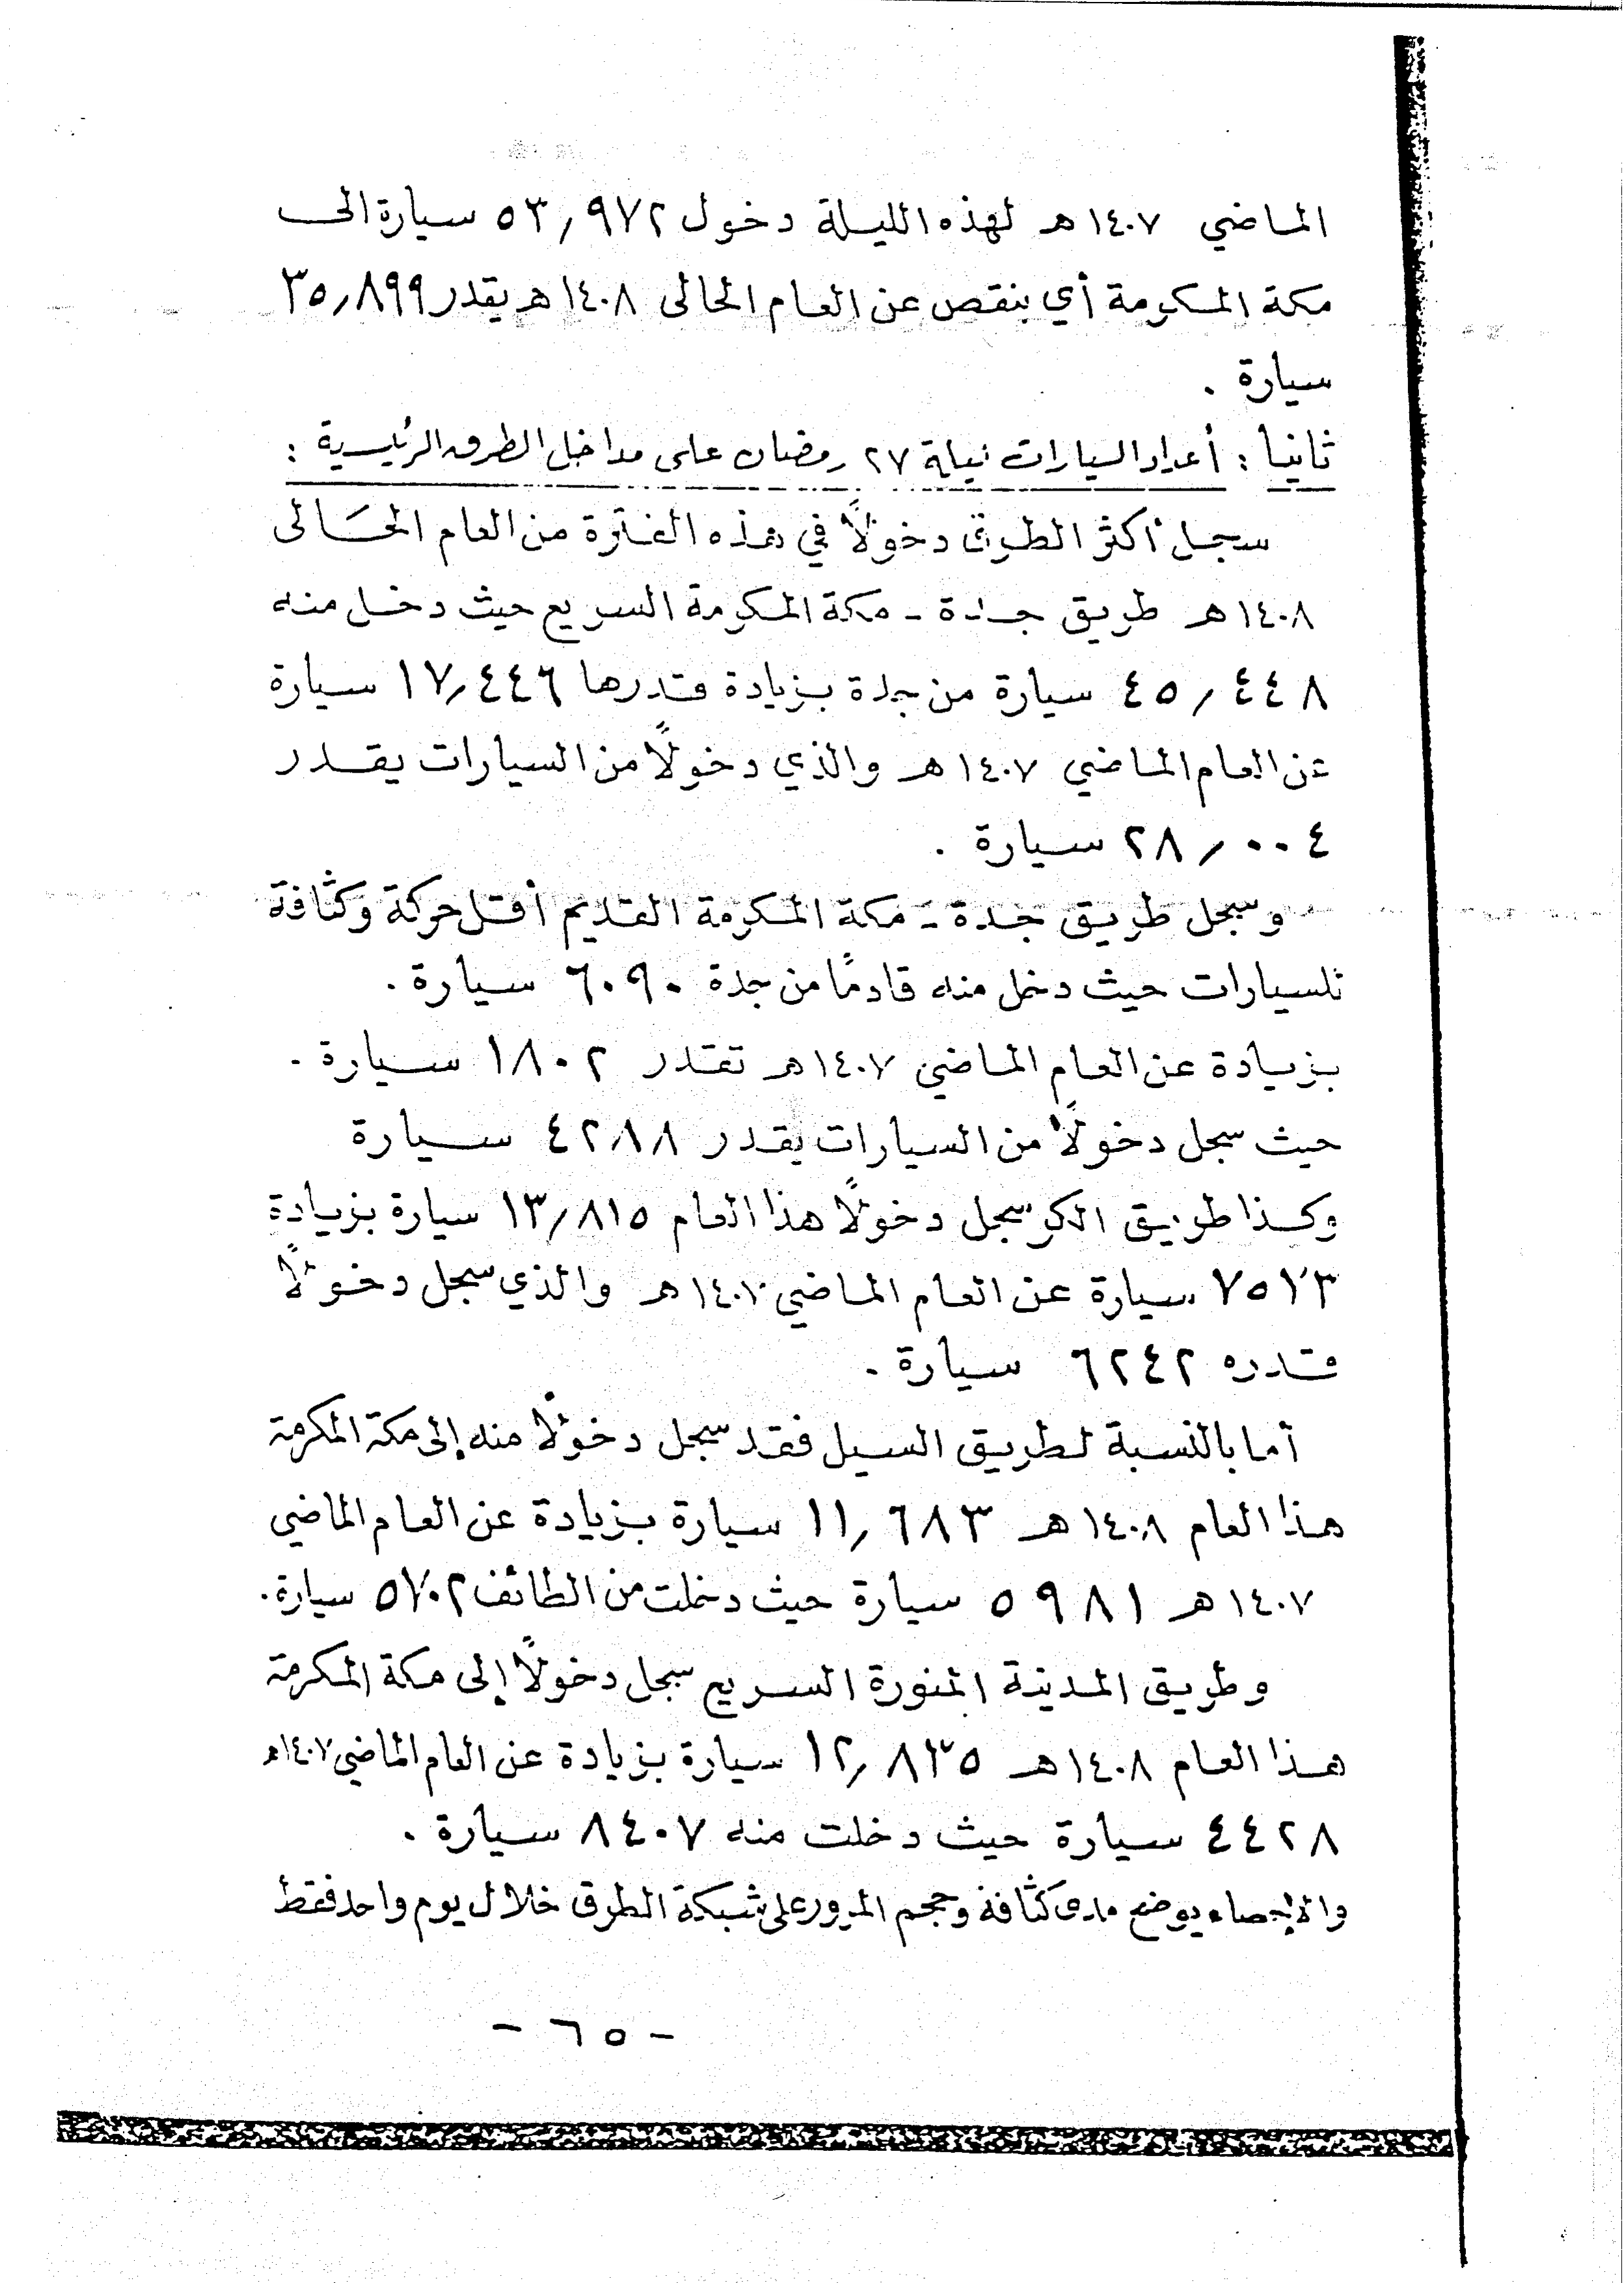 الماضي ١٤٠٧ هـ لهذه الليلة دخول ٥٣٫٩٧٢ سيارة الى
مكة المكرمة أي بنقص عن العام الحالى ١٤٠٨ هـ يقدر ٣٥٫٨٩٩
سيارة .
ثانيا : أعداد السيارات ليلة ٢٧ رمضان على مداخل الطرق الرئيسية :
سجل أكثر الطرق دخولاً في هذه الفترة من العام الحالى
١٤٠٨ هـ طريق جدة - مكة المكرمة السريع حيث دخل منه
٤٥٫٤٤٨ سيارة من جدة بزيادة قدرها ١٧٫٤٤٦ سيارة
عن العام الماضي ١٤٠٧ هـ والذي دخولاً من السيارات يقدر
٢٨٫٠٠٤ سيارة .
وسجل طريق جدة - مكة المكرمة القديم أقل حركة وكثافة
للسيارات حيث دخل منه قادمًا من جدة ٦٠٩٠ سيارة .
بزيادة عن العام الماضي ١٤٠٧ هـ تقدر ١٨٠٢ سيارة .
حيث سجل دخولاً من السيارات يقدر ٤٢٨٨ سيارة
وكذا طريق الكر سجل دخولاً هذا العام ١٣٫٨١٥ سيارة بزيادة
٧٥٧٣ سيارة عن العام الماضي ١٤٠٧ هـ والذي سجل دخولاً
قدره ٦٢٤٢ سيارة .
أما بالنسبة لطريق السيل فقد سجل دخولاً منه إلى مكة المكرمة
هذا العام ١٤٠٨ هـ ١١٫٦٨٣ سيارة بزيادة عن العام الماضي
١٤٠٧ هـ ٥٩٨١ سيارة حيث دخلت من الطائف ٥٧٠٢ سيارة .
وطريق المدينة المنورة السريع سجل دخولاً إلى مكة المكرمة
هذا العام ١٤٠٨ هـ ١٢٫٨٣٥ سيارة بزيادة عن العام الماضي ١٤٠٧هـ
٤٤٢٨ سيارة حيث دخلت منه ٨٤٠٧ سيارة .
والإحصاء يوضح مدى كثافة وحجم المرور على شبكة الطرق خلال يوم واحد فقط
- ٦٥ -